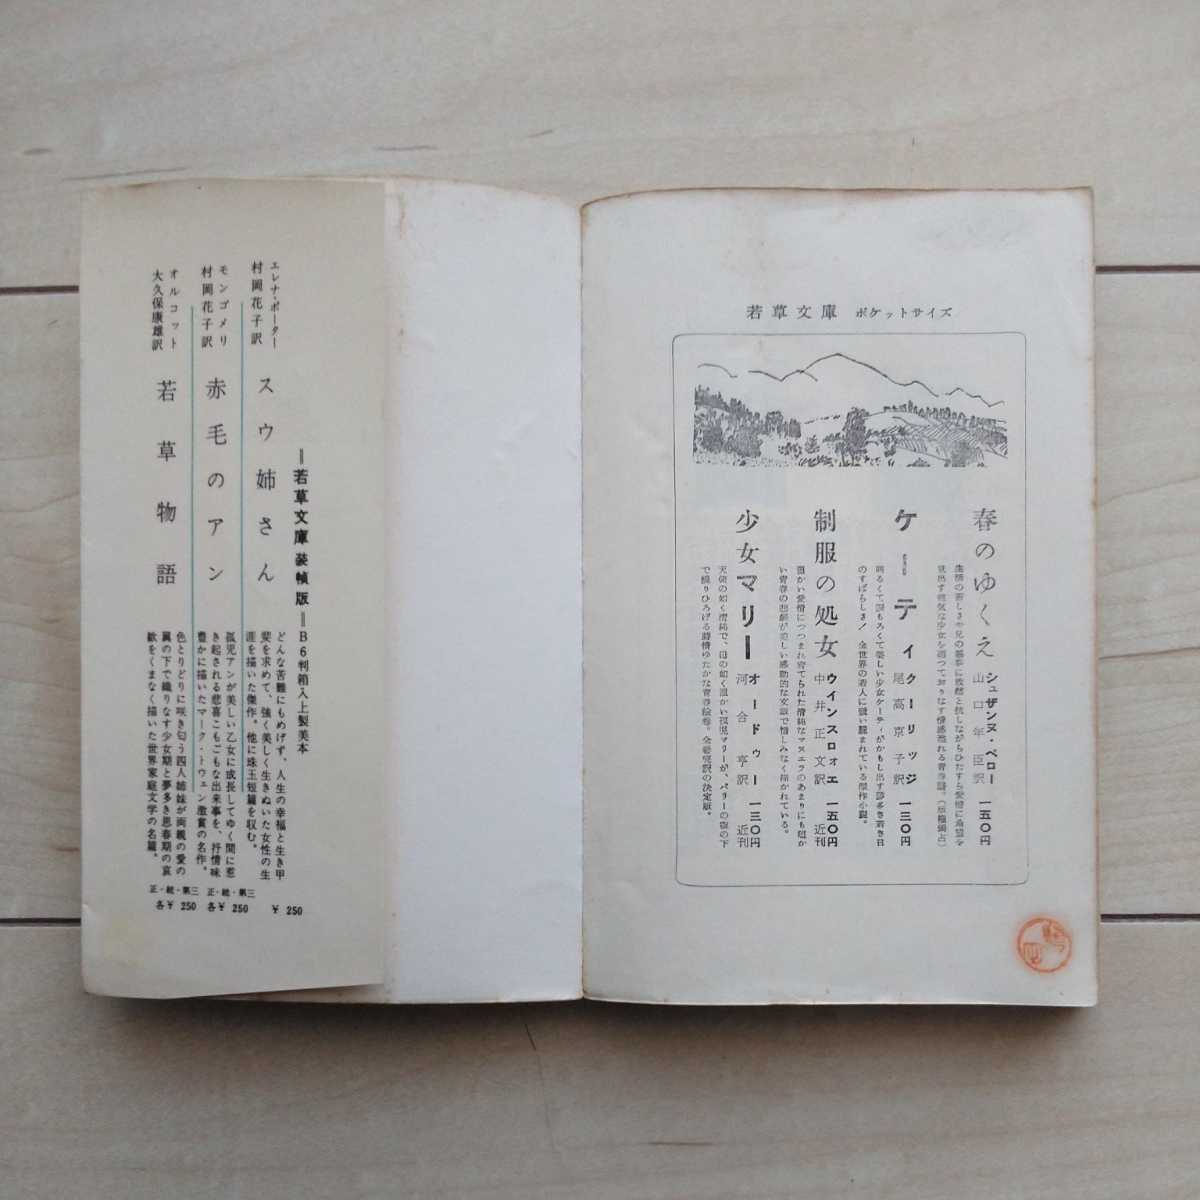 若草文庫 ポケットサイズ
春のゆくえ
シュザンヌ・ペロー
山口年臣訳
一五〇円
ケーティ
クーリッジ
尾高京子訳
一三〇円
制服の処女
ウインスロォエ
中井正文訳
一五〇円
近刊
い青春の悲劇が美しい感動的な文章で惜しみなく描かれている。
少女マリー
オードゥー
河合亨訳
一三〇円
近刊
天使の如く清純で、母の如く温かい孤児マリーが、パリーの宿の下
で繰りひろげる詩情ゆたかな青春絵巻。全巻完訳の決定版。
=若草文庫 装幀版=B6判箱入上製美本
エレナ・ポーター
村岡花子訳
スウ姉さん
どんな苦難にもめげず、人生の幸福と生き甲
斐を求めて、強く美しく生きぬいた女性の生
涯を描いた傑作。他に珠玉短篇を収む。
¥250
モンゴメリ
村岡花子訳
赤毛のアン
孤児アンが美しい乙女に成長してゆく間に惹
き起される悲喜こもごもな出来事を、抒情味
豊かに描いたマーク・トウェン激賞の名作。
正・続・第三
各¥250
オルコット
大久保康雄訳
若草物語
色とりどりに咲き匂う四人姉妹が両親の愛の
翼の下で織りなす少女期と夢多き思春期の哀
歓をくまなく描いた世界家庭文学の名篇。
正・続・第三
各¥250